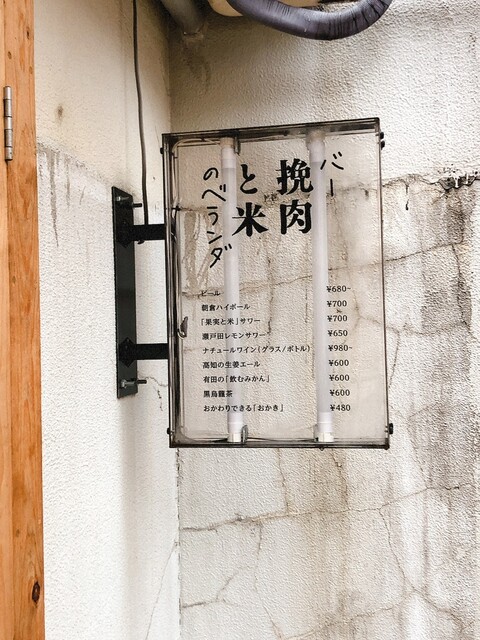 バー
挽肉
と米
のベランダ
ビール ¥680~
朝倉ハイボール ¥700
「果実と米」サワー ¥700
瀬戸田レモンサワー ¥650
ナチュールワイン(グラス/ボトル) ¥980~
高知の生姜エール ¥600
有田の「飲むみかん」 ¥600
黒烏龍茶 ¥600
おかわりできる「おかき」 ¥480